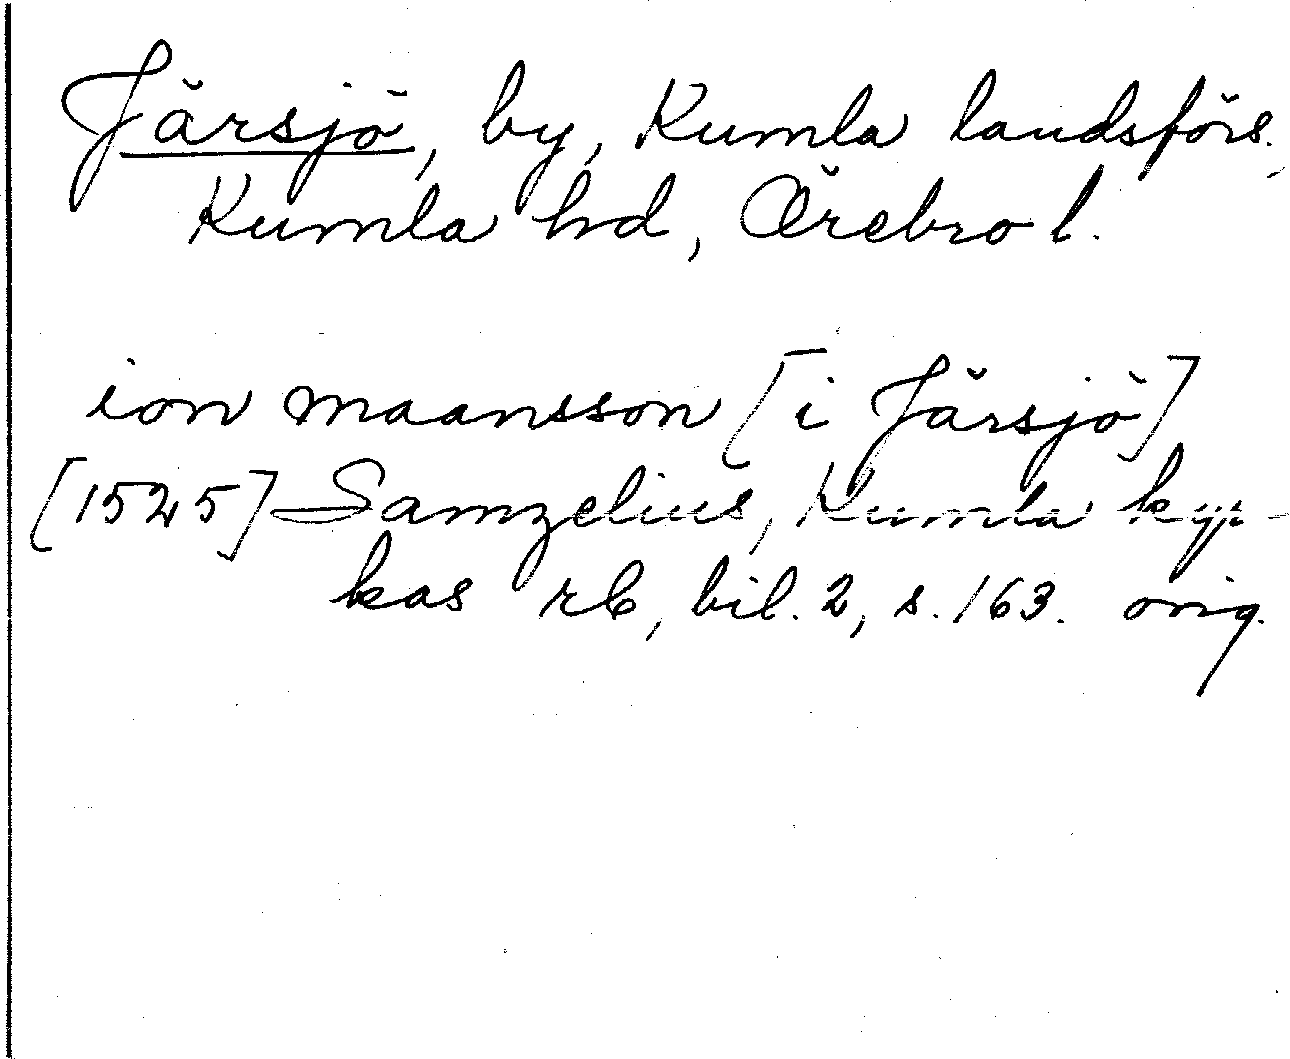 Järsjö, by, Kumla landsförs.,
Kumla hd, Örebro l.
ion maansson [i Järsjö]
[1525] Samzelius, Kumla kyr-
kas rb, bil. 2, s. 163. orig.